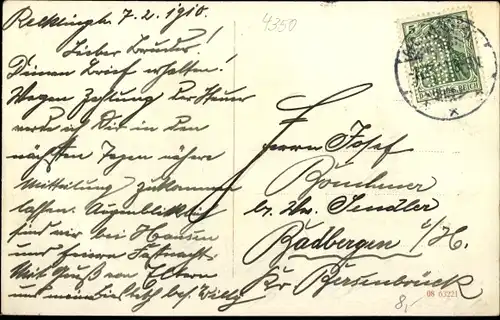 Recklingh. 7.2.1910.
4350
Lieber Bruder!
Deinen Brief erhalten!
Wegen Zahlung der Steuer
werde ich Dir in den
nächsten Tagen nähere
Mitteilung zukommen
lassen. Augenblicklich
sind wir bei
und feiern Fastnacht.
Mit Gruß von Eltern
und
5
DEUTSCHES REICH
Herrn Josef
b. Ww.
Badbergen i/H.
Kr Bersenbrück
08 63221
8,-